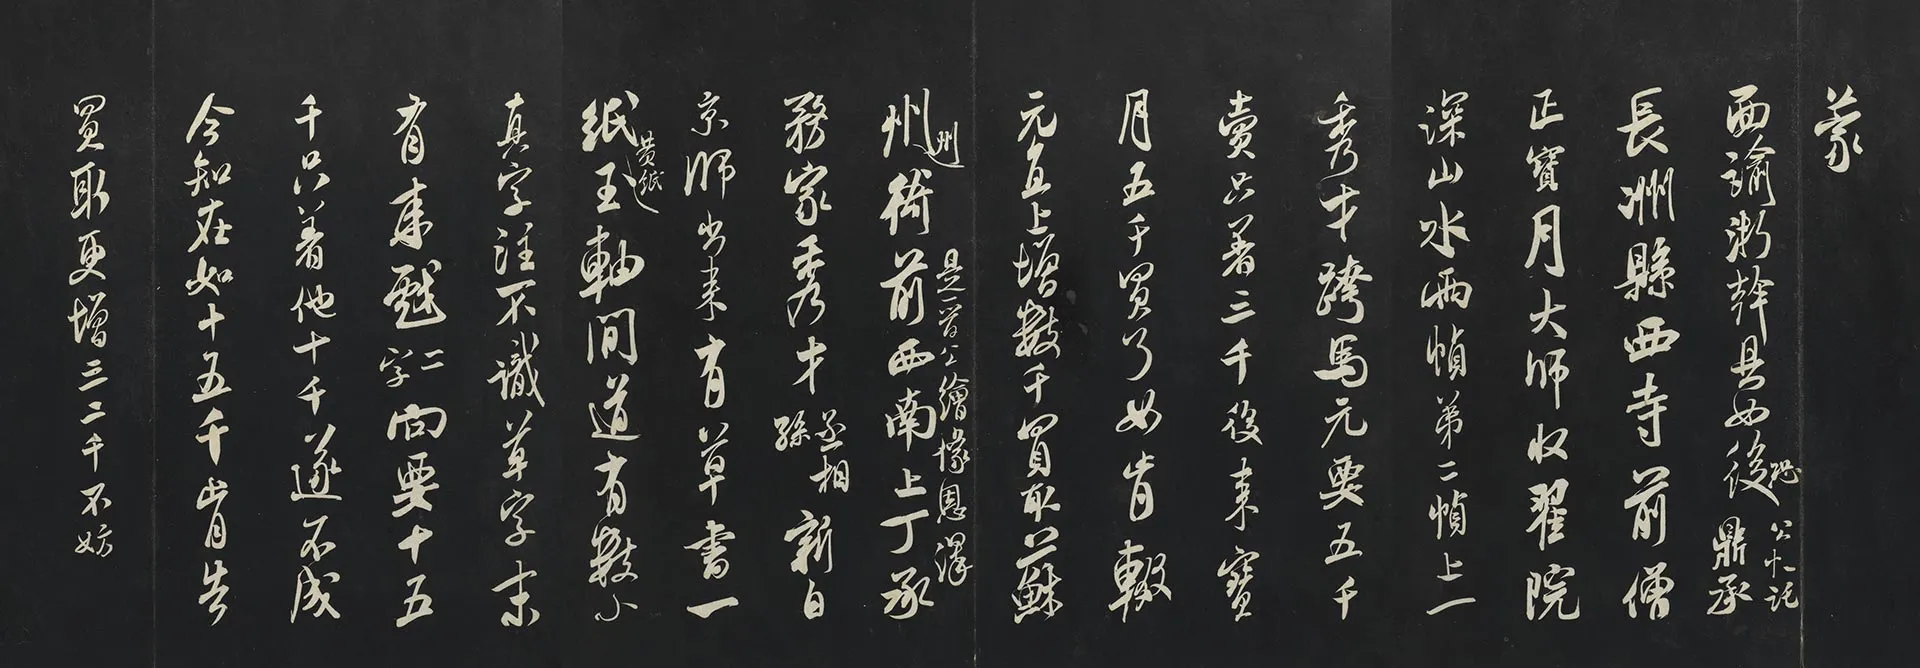 蒙
面諭浙幹具如後
恐公忙託
鼎承
長洲縣西寺前僧
正寶月大師收翟院
深山水兩幀第二幀上一
秀才跨馬元要五千
賣只著三千後來寶
月五千買了如肯輟
元直上增數千買取蘇
州州衙前西南上丁承
是晉公繪像恩澤
務家秀才丞相孫新自
京師出來有草書一
紙黃紙玉軸間道有數小
真字注不識草字末
有來戲二字向要十五
千只着他十千遂不成
今知在如十五千肯告
買取更增三二千不妨